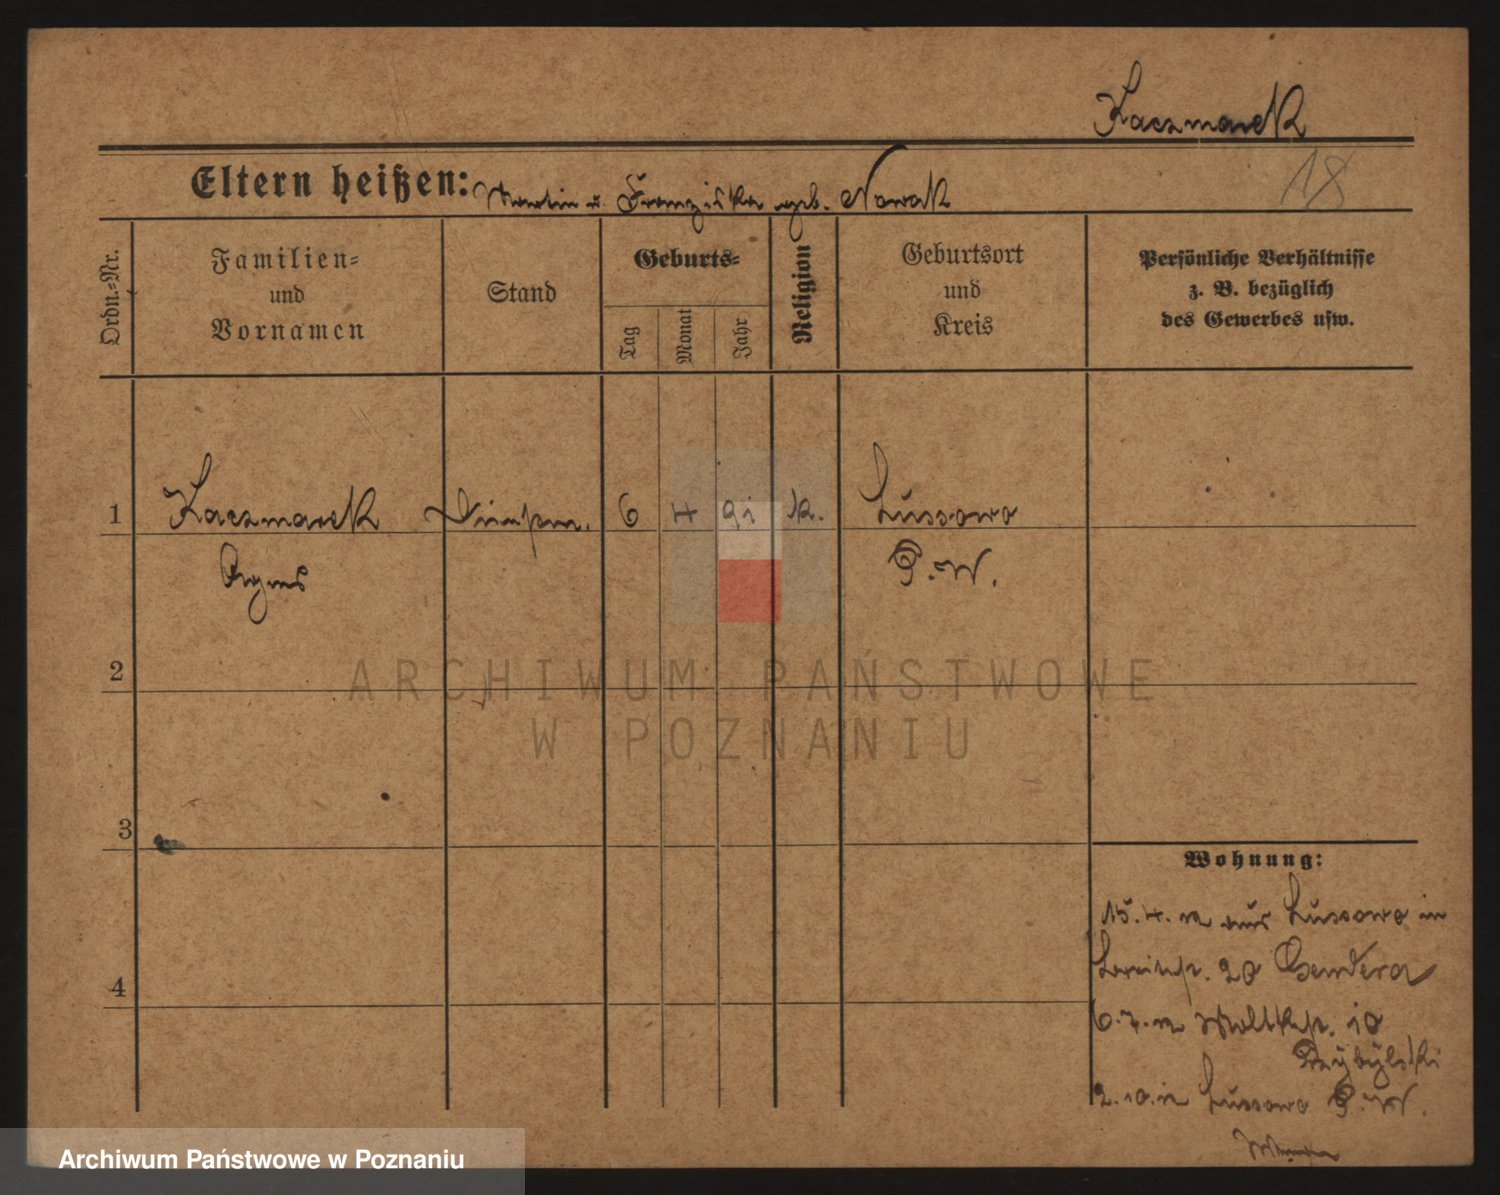 Kaczmarek
18
Eltern heißen: Martin u. Franziska geb. Nowak
Ordn.-Nr.
Familien-
und
Vornamen
Stand
Geburts-
Tag
Monat
Jahr
Religion
Geburtsort
und
Kreis
Persönliche Verhältnisse
z. B. bezüglich
des Gewerbes usw.
1 Kaczmarek Dienstm. 6 4 91 k. Lussowo
Agnes P.-W.
2
ARCHIWUM PAŃSTWOWE
W POZNANIU
3
Wohnung:
15.4. aus Lussowo in
20
4
6.7. Moltkestr. 10
Lussowo P.-W.
Archiwum Państwowe w Poznaniu